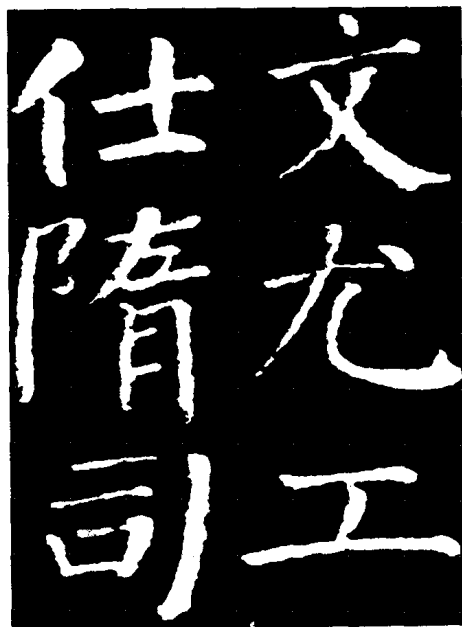 文尤工
仕隋司